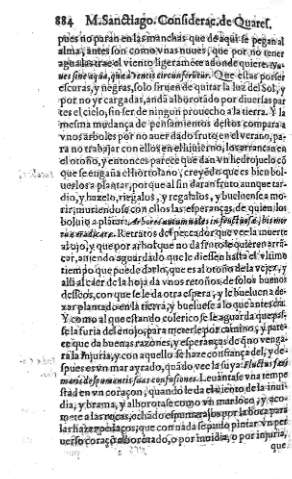 884 M. Sanctiago. Considerac. de Quares.
pues no paran en las manchas que de aqui se pegan al
alma, antes son como vnas nuues, que por no tener
agua las trae el viento ligeramẽte adonde quiere.
nes sine aqua, quæ à ventis circunferũtur. Que estas por ser
escuras, y negras, solo siruen de quitar la luz del Sol, y
por no yr cargadas, andã alborotado por diuersas par
tes el cielo, sin ser de ningun prouecho a la tierra. Y la
mesma mudança de pensamientos destos compara a
vnos arboles por no auer dado fruto en el verano, pa-
ra no trabajar con ellos en el hiuierno, los arrancan en
el otoño, y entonces parece que dan vn hedrojuelo cõ
que se engaña el hortolano, creyẽdo que es bien bol-
uerlos a plantar, porque al fin daran fruto aunque tar-
dio, y hazelo, riegalos, y regalalos, y bueluense a mo-
rir, muriendose con ellos las esperanças, de quien los
boluio a plãtar, arbores autumnales infructuosæ, bis mor
tuæ eradicatæ. Retratos del peccador que vee la muerte
al ojo, y que por arbol que no da fruto le quieren arrã-
car, auiendo aguardado que le diessen hasta el vltimo
tiempo que puede darlo, que es al otoño de la vejez, y
alli al caer de la hoja da vnos retoños de solos buenos
desseos, con que se le da otra espera, y le bueluen a de-
xar plantado en la tierra, y bueluese a lo que antes era.
Y como al que estando colerico se le aguarda que pas-
se la furia del enojo, para meterle por camino, y pare-
ce que da buenas razones, y esperanças de que venga-
ra la injuria, y con aquello se haze confiança del, y des-
pues es vn mar ayrado, quãdo vee la suya: Fluctus feri
maris despumantis suas confusiones. Leuãtase vna tempe
stad en vn coraçon, quando le da el viento de la inui-
dia, y brama, y alborotase como vn mar loco, y aco-
mete a las rocas, echãdo espumarajos por la boca para
las haze pedaços; que con nada se pudo pintar vn per
uerso coraçõ alborotado, o por inuidia, o por injuria,
que